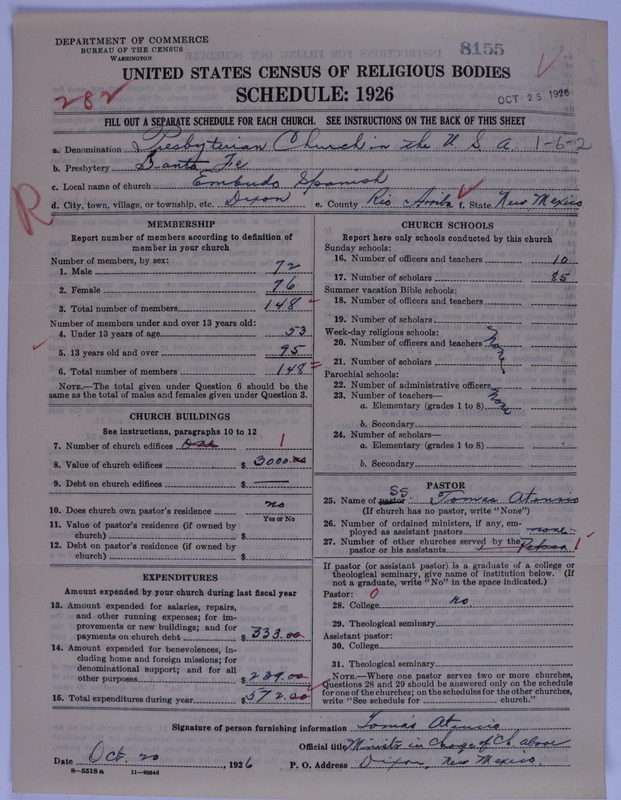 DEPARTMENT OF COMMERCE
BUREAU OF THE CENSUS
WASHINGTON
8155
UNITED STATES CENSUS OF RELIGIOUS BODIES
282
SCHEDULE: 1926
OCT 25 1926
FILL OUT A SEPARATE SCHEDULE FOR EACH CHURCH. SEE INSTRUCTIONS ON THE BACK OF THIS SHEET
a. Denomination Presbyterian Church in the U. S. A. 1-6-2
b. Presbytery Santa Fe
c. Local name of church Embudo Spanish
R
d. City, town, village, or township, etc. Dixon e. County Rio Arriba f. State New Mexico
MEMBERSHIP
Report number of members according to definition of
member in your church
Number of members, by sex:
1. Male 72
2. Female 76
3. Total number of members 148
Number of members under and over 13 years old:
4. Under 13 years of age 53
5. 13 years old and over 95
6. Total number of members 148
NOTE.—The total given under Question 6 should be the
same as the total of males and females given under Question 3.
CHURCH BUILDINGS
See instructions, paragraphs 10 to 12
7. Number of church edifices One 1
8. Value of church edifices $ 3000.00
9. Debt on church edifices $ —
10. Does church own pastor's residence no
Yes or No
11. Value of pastor's residence (if owned by
church) $
12. Debt on pastor's residence (if owned by
church) $
EXPENDITURES
Amount expended by your church during last fiscal year
13. Amount expended for salaries, repairs,
and other running expenses; for im-
provements or new buildings; and for
payments on church debt $ 333.00
14. Amount expended for benevolences, in-
cluding home and foreign missions; for
denominational support; and for all
other purposes $ 239.00
15. Total expenditures during year $ 572.00
CHURCH SCHOOLS
Report here only schools conducted by this church
Sunday schools:
16. Number of officers and teachers 10
17. Number of scholars 85
Summer vacation Bible schools:
18. Number of officers and teachers
19. Number of scholars
Week-day religious schools:
20. Number of officers and teachers none
21. Number of scholars
Parochial schools:
22. Number of administrative officers
23. Number of teachers—
a. Elementary (grades 1 to 8) none
b. Secondary
24. Number of scholars—
a. Elementary (grades 1 to 8)
b. Secondary
PASTOR
SS
25. Name of pastor Tomas Atencio
(If church has no pastor, write "None")
26. Number of ordained ministers, if any, em-
ployed as assistant pastors none
27. Number of other churches served by the
pastor or his assistants 1
If pastor (or assistant pastor) is a graduate of a college or
theological seminary, give name of institution below. (If
not a graduate, write "No" in the space indicated.)
Pastor: 0
28. College no
29. Theological seminary
Assistant pastor:
30. College
31. Theological seminary
NOTE.—Where one pastor serves two or more churches,
Questions 28 and 29 should be answered only on the schedule
for one of the churches; on the schedules for the other churches,
write "See schedule for church."
Signature of person furnishing information Tomas Atencio
Official title Minister in Charge of Ch. above
Date Oct. 20, 1926 P. O. Address Dixon, New Mexico.
8-5518 a